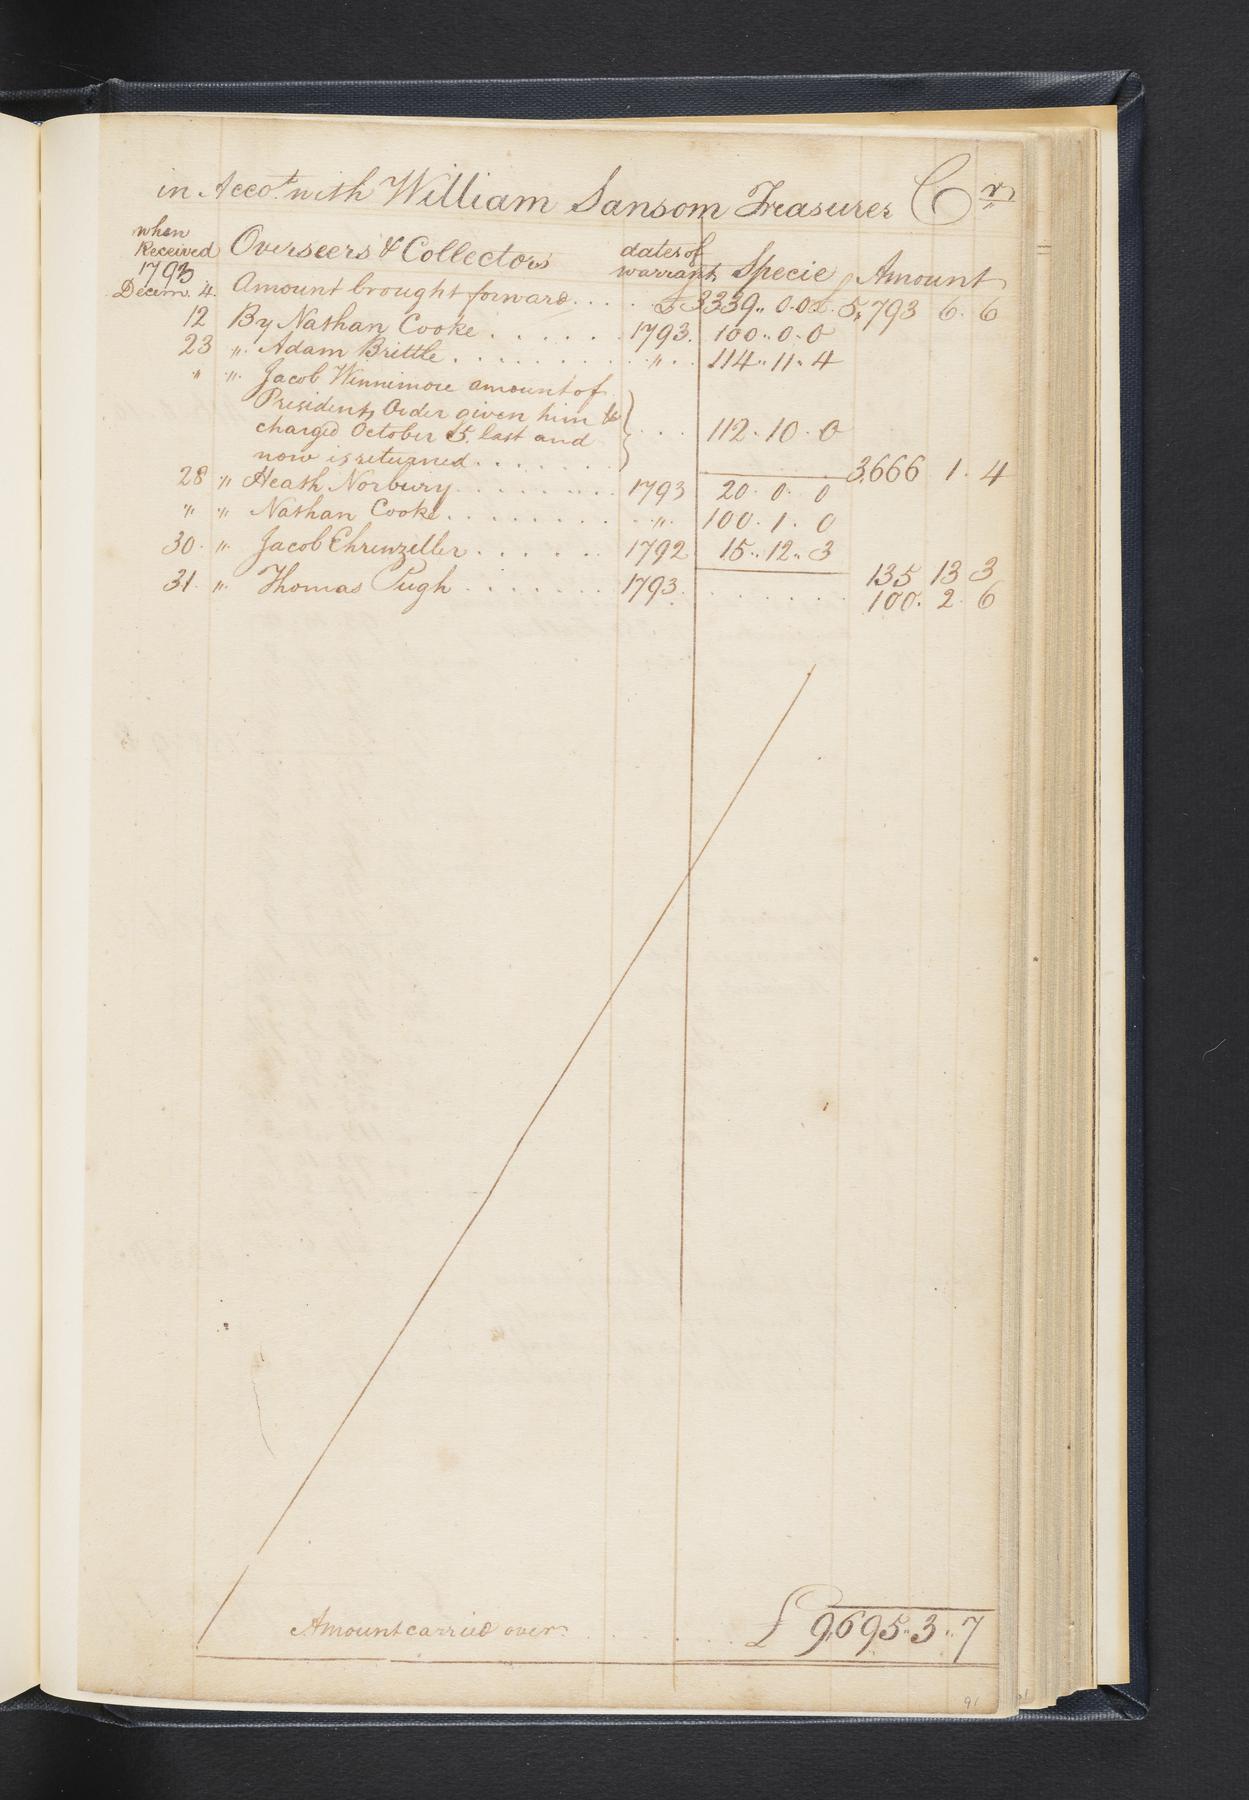 in Accot. with William Sansom Treasurer Cr
when Received 1793 Overseers & Collectors dates of warrants Specie Amount
Decem. 4. Amount brought forward.... £3339.. 0.0 £ 5,793 6. 6
12 By Nathan Cooke...... 1793. 100..0.0
23 ". Adam Brittle........ ". 114..11.4
" ". Jacob Winnimore amount of
Presidents Order given him &
charged October 5. last and ... 112.10.0
now is returned....... 3,666 1. 4
28 " Heath Norbury........ 1793 20. 0. 0
" ". Nathan Cooke........ ". 100. 1. 0
30. ". Jacob Ehrenzeller...... 1792 15..12..3
135 13 3
31. ". Thomas Pugh....... 1793....... 100. 2. 6
Amount carried over.... £ 9,695..3..7
91